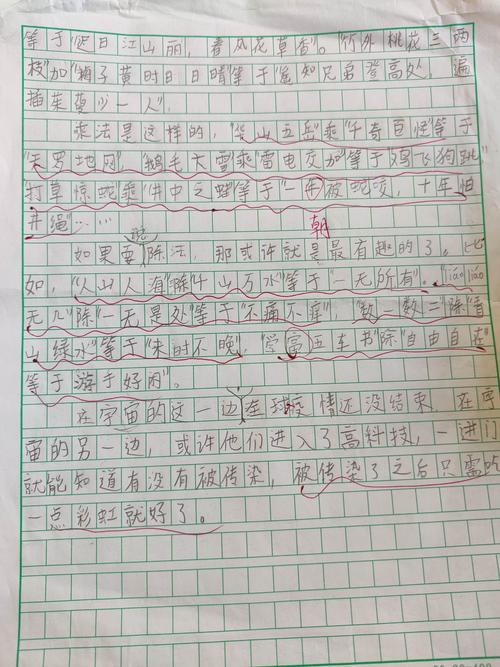 等于"迟日江山丽，春风花草香"。"竹外桃花三两
枝"加"梅子黄时日日晴"等于"遥知兄弟登高处，遍
插茱萸少一人"。
乘法是这样的，"华山五岳"乘"千奇百怪"等于
"天罗地网"，"鹅毛大雪"乘"雷电交加"等于"鸡飞狗跳"
"打草惊蛇"乘"井中之蛙"等于"一朝被蛇咬，十年怕
井绳"……
朝
如果要说除法，那或许就是最有趣的了。比
如，"人山人海"除"千山万水"等于"一无所有"。"liáo liáo
无几"除"一无是处"等于"不痛不痒"，"数一数二"除"青
山绿水"等于"来时不晚"，"学富五车书"除"自由自在"
等于游手好闲"。
在宇宙的这一边全球疫情还没结束，在宇
宙的另一边，或许他们进入了高科技，一进门
就能知道有没有被传染，被传染了之后只需吃
一点彩虹就好了。